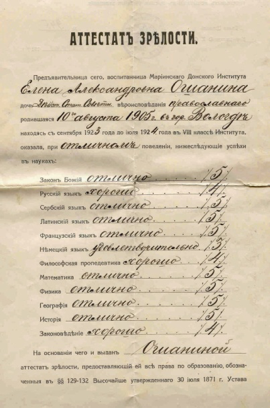 АТТЕСТАТЪ ЗРѢЛОСТИ.
Предъявительница сего, воспитанница Маріинскаго Донского Института
Елена Александровна Огшанина
вѣроисповѣданія православнаго
родившаяся 10го августа 1905 г. въ гор. Вологдѣ
находясь съ сентября 1923 года по іюнь 1924 въ VIII классѣ Института,
оказала, при отличномъ поведеніи, нижеслѣдующіе успѣхи
въ наукахъ:
Законъ Божій отлично /5/
Русскій языкъ хорошо /4/
Сербскій языкъ отлично /5/
Латинскій языкъ отлично /5/
Французскій языкъ отлично /5/
Нѣмецкій языкъ удовлетворительно /3/
Философская пропедевтика хорошо /4/
Математика отлично /5/
Физика отлично /5/
Географія отлично /5/
Исторія отлично /5/
Законовѣдѣніе хорошо /4/
На основаніи чего и выданъ Огшаниной
аттестатъ зрѣлости, предоставляющій ей всѣ права по образованію, обозна-
ченныя въ §§ 129-132 Высочайше утвержденнаго 30 іюля 1871 г. Устава